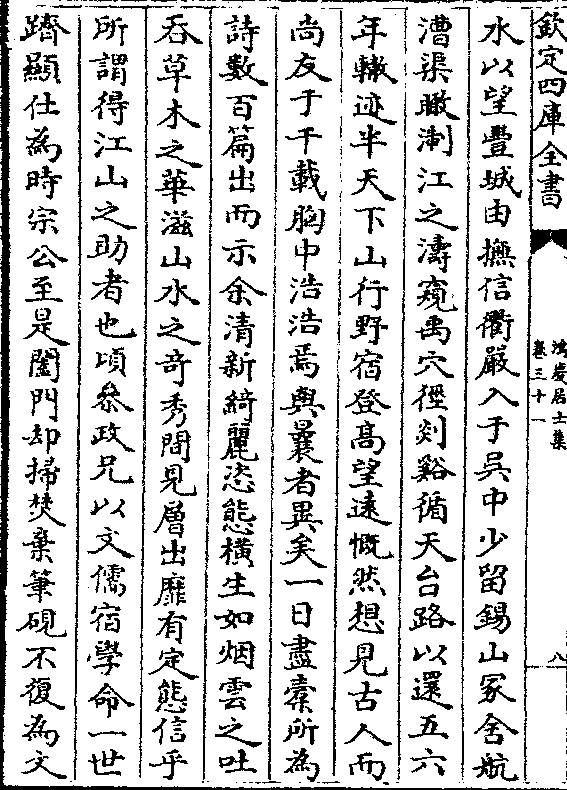 欽定四庫全書
鴻慶居士集
卷三十一
八
水以望豐城由撫信衢嚴入于吳中少留錫山冢舍航
漕渠瞰淛江之濤窺禹穴徑剡谿循天台路以還五六
年轍迹半天下山行野宿登髙望逺慨然想見古人而
尚友于千載胸中浩浩焉與曩者異矣一日盡索所為
詩數百篇出而示余清新綺麗恣態横生如烟雲之吐
吞草木之華滋山水之竒秀間見層出靡有定態信乎
所謂得江山之助者也頃叅政兄以文儒宿學命一世
躋顯仕為時宗公至是闔門却掃焚棄筆硯不復為文